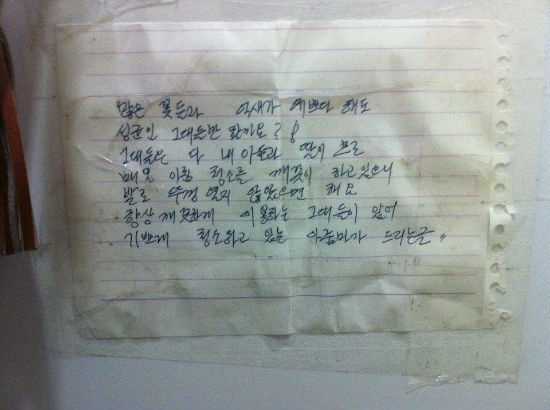 많은 꽃들과 억새가 예쁘다 해도
성균인 그대들만 할까요?!
그대들은 다 내 아들과 딸이므로
매일 아침 청소를 깨끗이 하고 있으니
발로 뚜껑 열지 않았으면 해요
항상 깨끗하게 이용하는 그대들이 있어
기쁘게 청소하고 있는 아줌마가 드리는글 〃